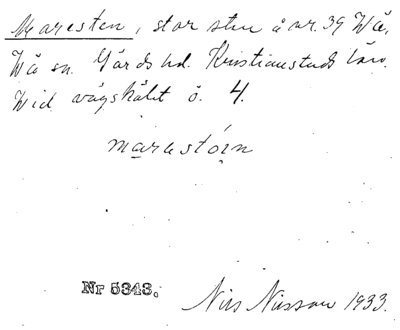 Maresten, stor sten å nr. 39 Wä,
Wä sn. Gärds hd. Kristianstads län.
Wid vägskälet ö. 4.
marestöin
Nr 5343.
Nils Nilsson 1933.